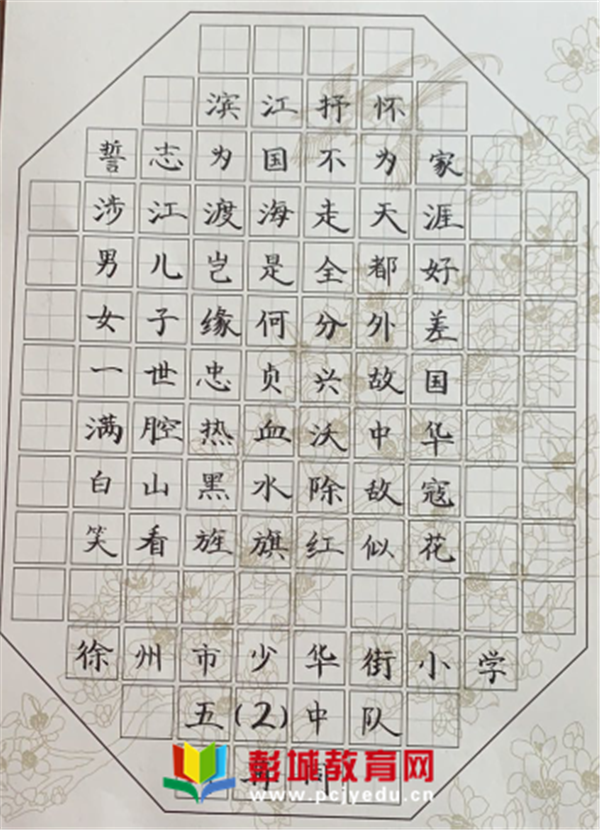 滨江抒怀
誓志为国不为家
涉江渡海走天涯
男儿岂是全都好
女子缘何分外差
一世忠贞兴故国
满腔热血沃中华
白山黑水除敌寇
笑看旌旗红似花
徐州市少华街小学
五(2)中队
彭城教育网
www.pcjyedu.cn